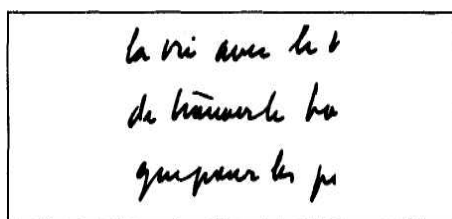 la vie avec le t
de trouver le bo
que pour les pe